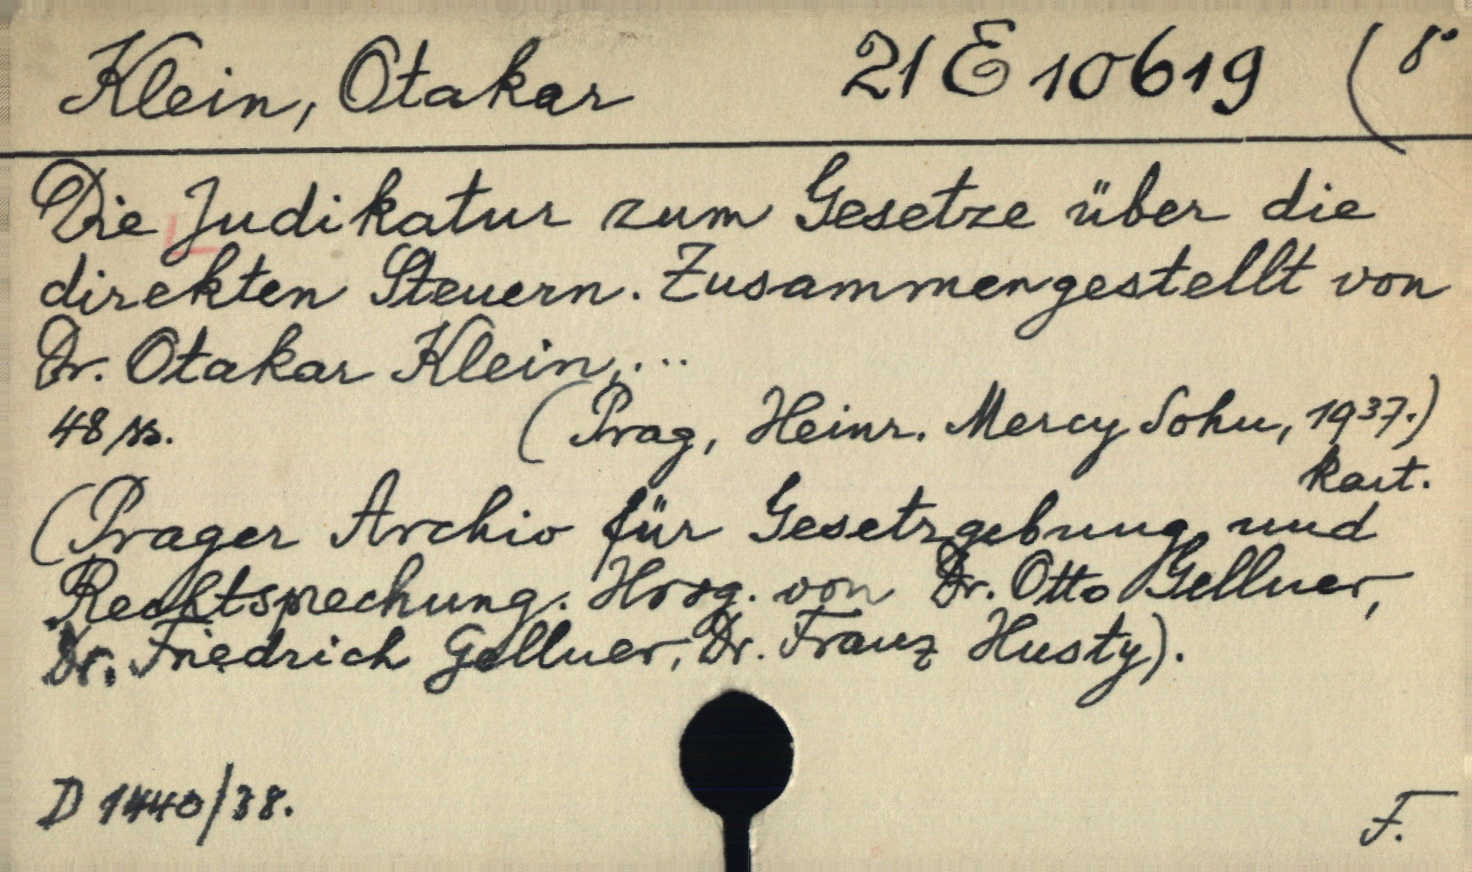 Klein, Otakar 21 E 10619 ( 8°
Die Judikatur zum Gesetze über die
direkten Steuern. Zusammengestellt von
Dr. Otakar Klein, ...
48 ss. (Prag, Heinr. Mercy Sohn, 1937.)
kart.
(Prager Archiv für Gesetzgebung und
Rechtsprechung. Hrsg. von Dr. Otto Gellner,
Dr. Friedrich Gellner, Dr. Franz Husty).
D 1440/38.
F.